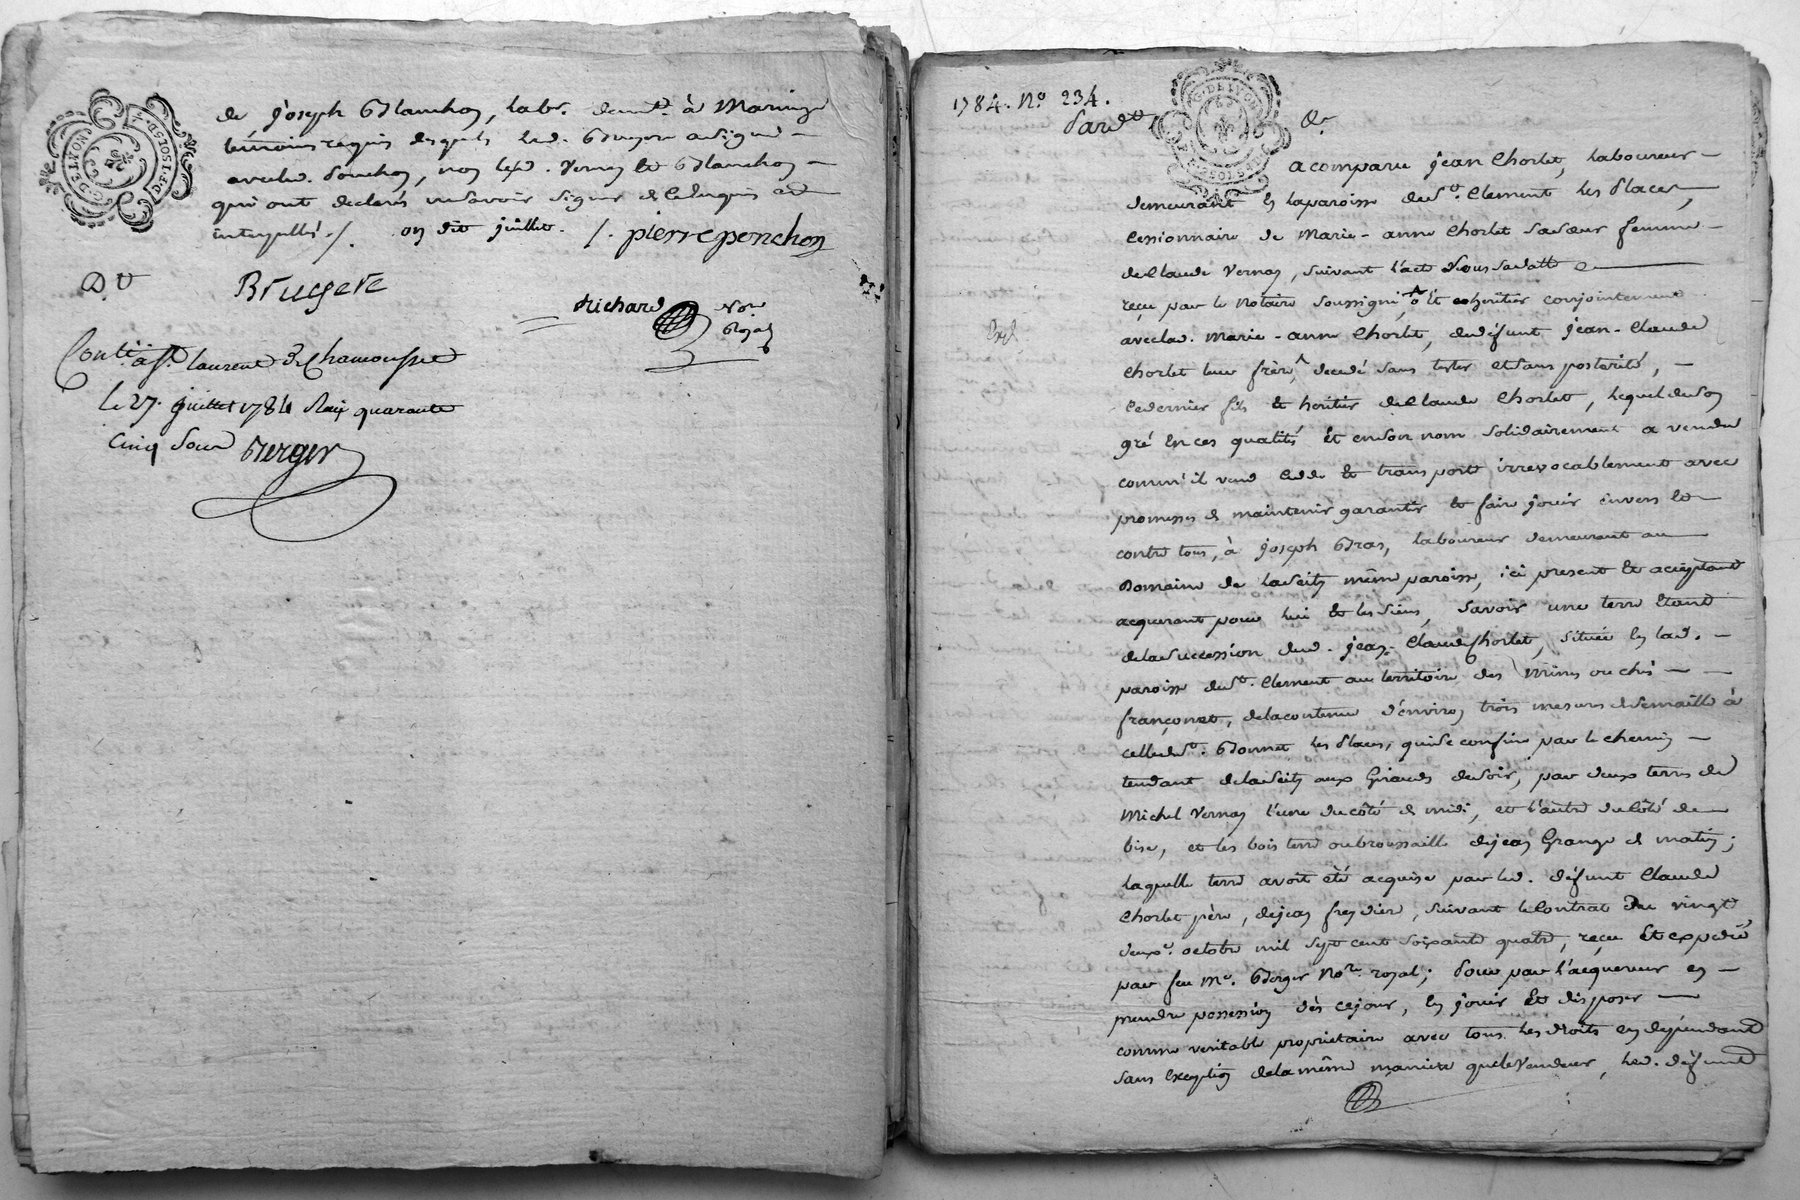 de joseph Blanchon, labr. demt. à Maringe
témoins requis desquels led. Brugere a signé
avec led. Ponchon, non led. Vernay et Blanchon
qui ont declarés ne savoir signer de ce enquis et
interpellés ./. on dit juillet. /. pierre ponchon
Brugere
Richard Nore.
Royal
Contlé. à St. Laurent de Chamousset
le 27. juillet 1784 Reçu quarante
cinq sous Berger
G. DE LYON
1784. No. 234.
Pardt.
G. DE LYON
a comparu jean Chorlet, laboureur
demeurant en la paroisse de St. Clement les places,
cessionnaire de Marie-anne Chorlet sa sœur femme
de Claude Vernay, suivant l'acte
reçu par le notaire soussigné, et cohéritier conjointement
avec lad. Marie-anne Chorlet, du défunt jean-Claude
Chorlet leur frère, decedé sans tester et sans postérité,
ce dernier fils et heritier de Claude Chorlet, lequel de son
gré en ces qualités et en son nom solidairement a vendu
comm'il vend cede et transporte irrevocablement avec
promesses de maintenir garantir et faire jouir envers et
contre tous, à joseph Bras, laboureur demeurant au
Domaine de même paroisse, ici present et acceptant
acquerant pour lui et les siens, savoir une terre étant
de la succession dud. jean-Claude Chorlet, située en lad.
paroisse de St. Clement au territoire des ou chés
françonet, de la contenue d'environ trois mesures de semaille à
celle de St. Bonnet les places, qui se confine par le chemin
tendant de aux Girauds de soir, par deux terres de
Michel Vernay l'une du côté de midi, et l'autre du côté de
bise, et les bois terre ou broussaille de jean Grange de matin;
laquelle terre avoit été acquise par led. défunt Claude
Chorlet père, de jean freydier, suivant le Contrat du vingt
deuxe. octobre mil sept cent soixante quatre, reçu et expedié
par feu Me. Berger Nore. royal; pour par l'acquereur en
prendre possession dès ce jour, en jouir et disposer
comme veritable proprietaire avec tous les droits en dépendant
sans exception de la même maniere que le vendeur, led. défunt